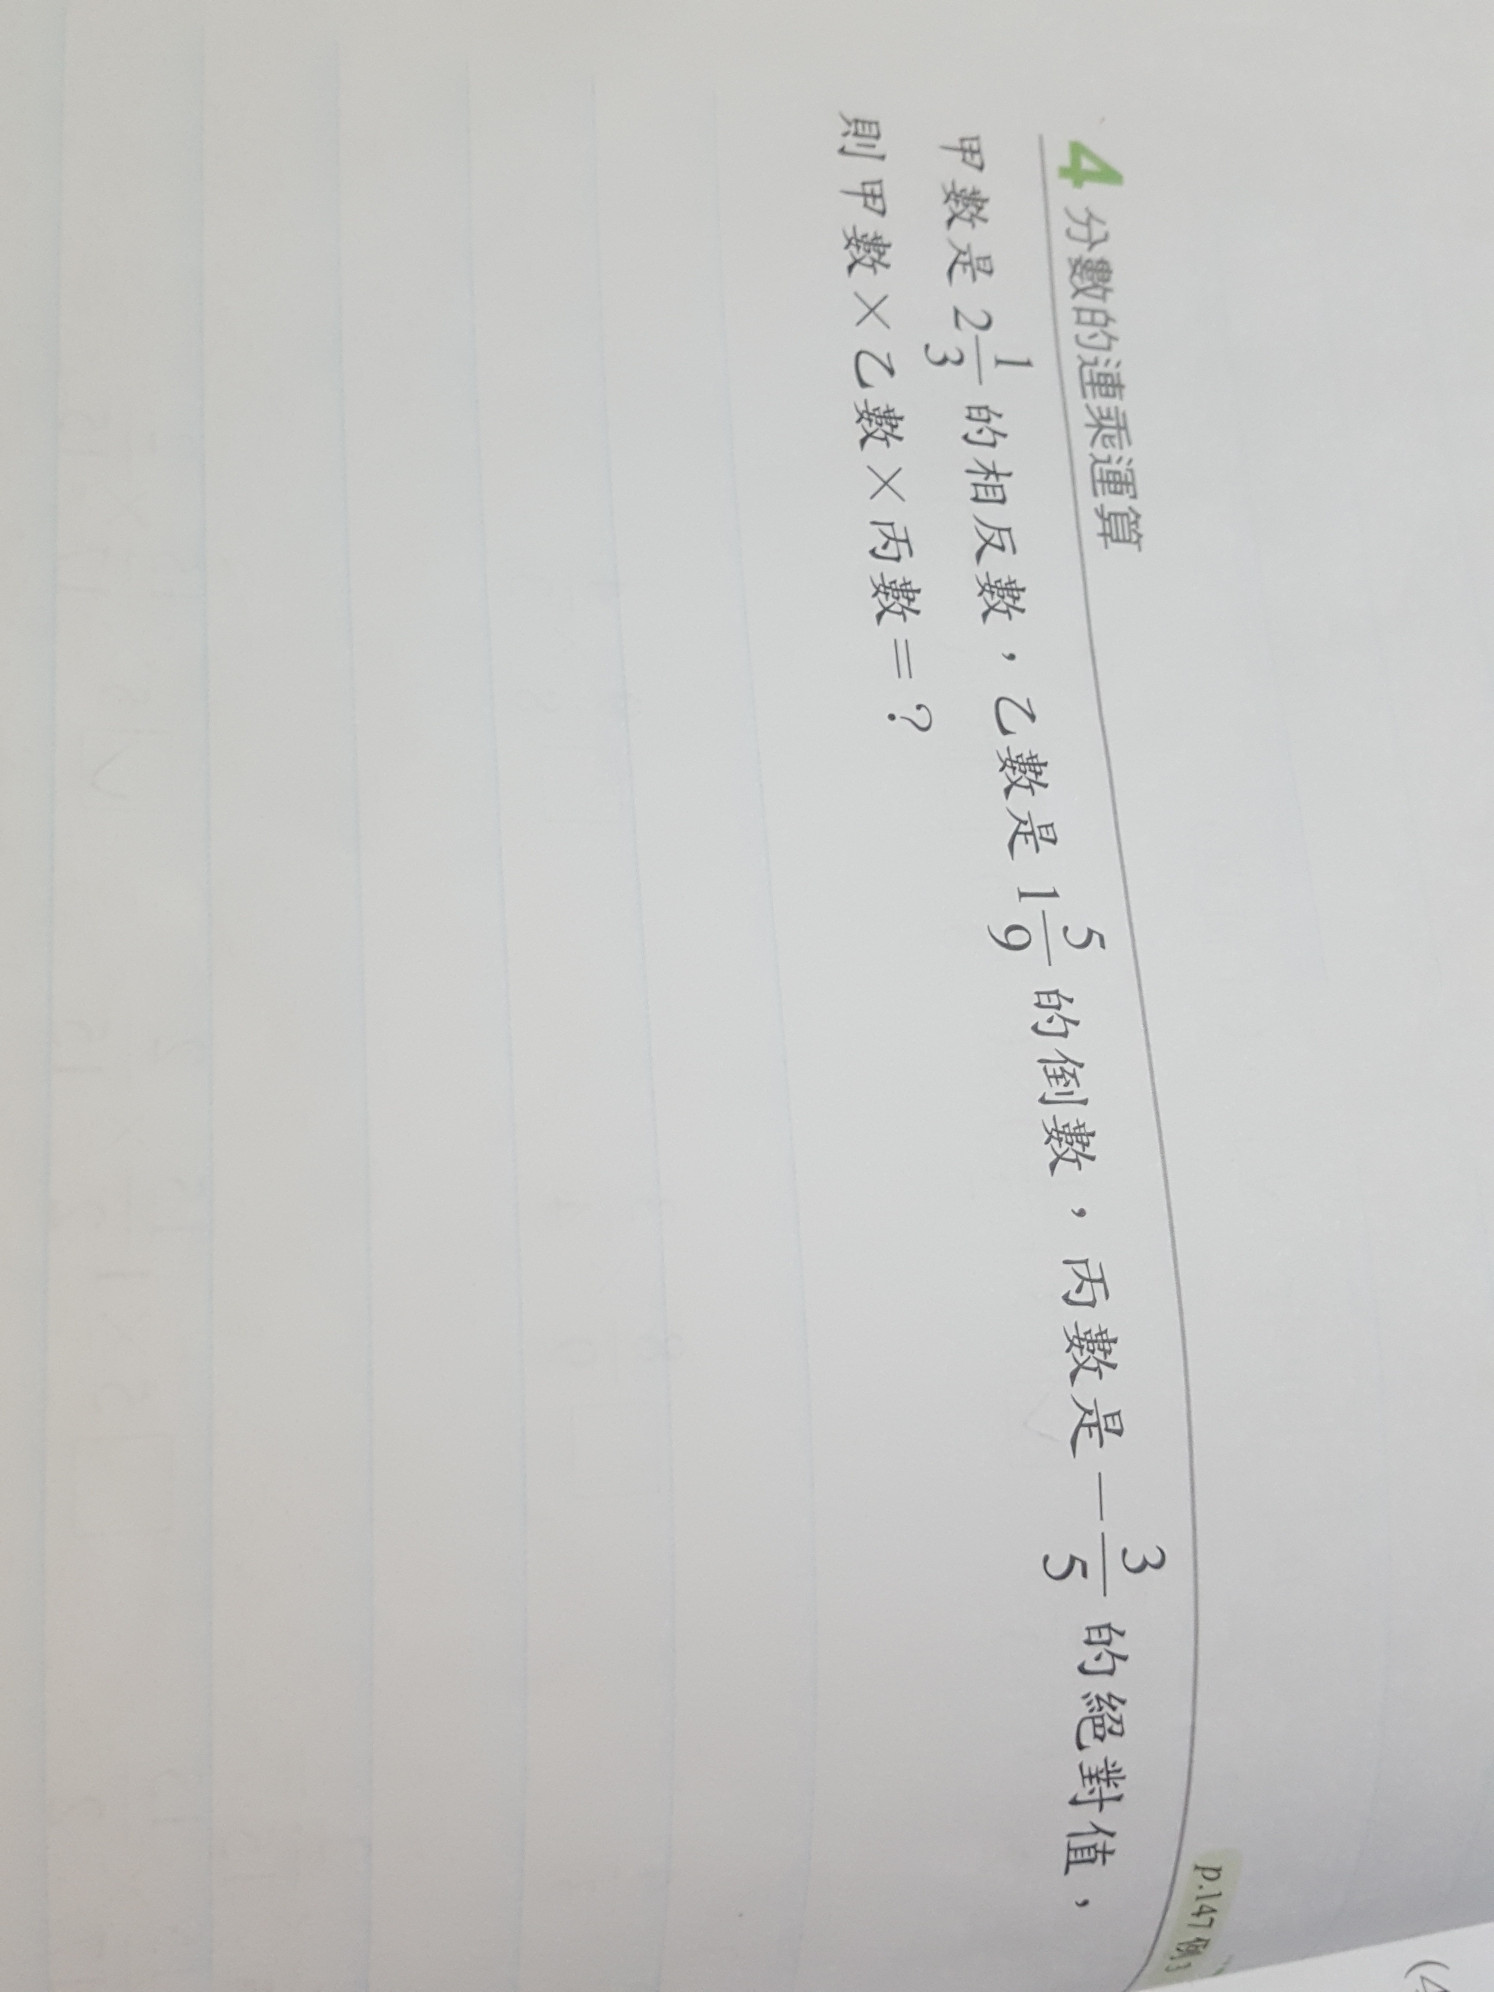 4 分數的連乘運算
p.147 例3
甲數是 2 1/3 的相反數，乙數是 1 5/9 的倒數，丙數是 －3/5 的絕對值，
則甲數×乙數×丙數＝？
(4